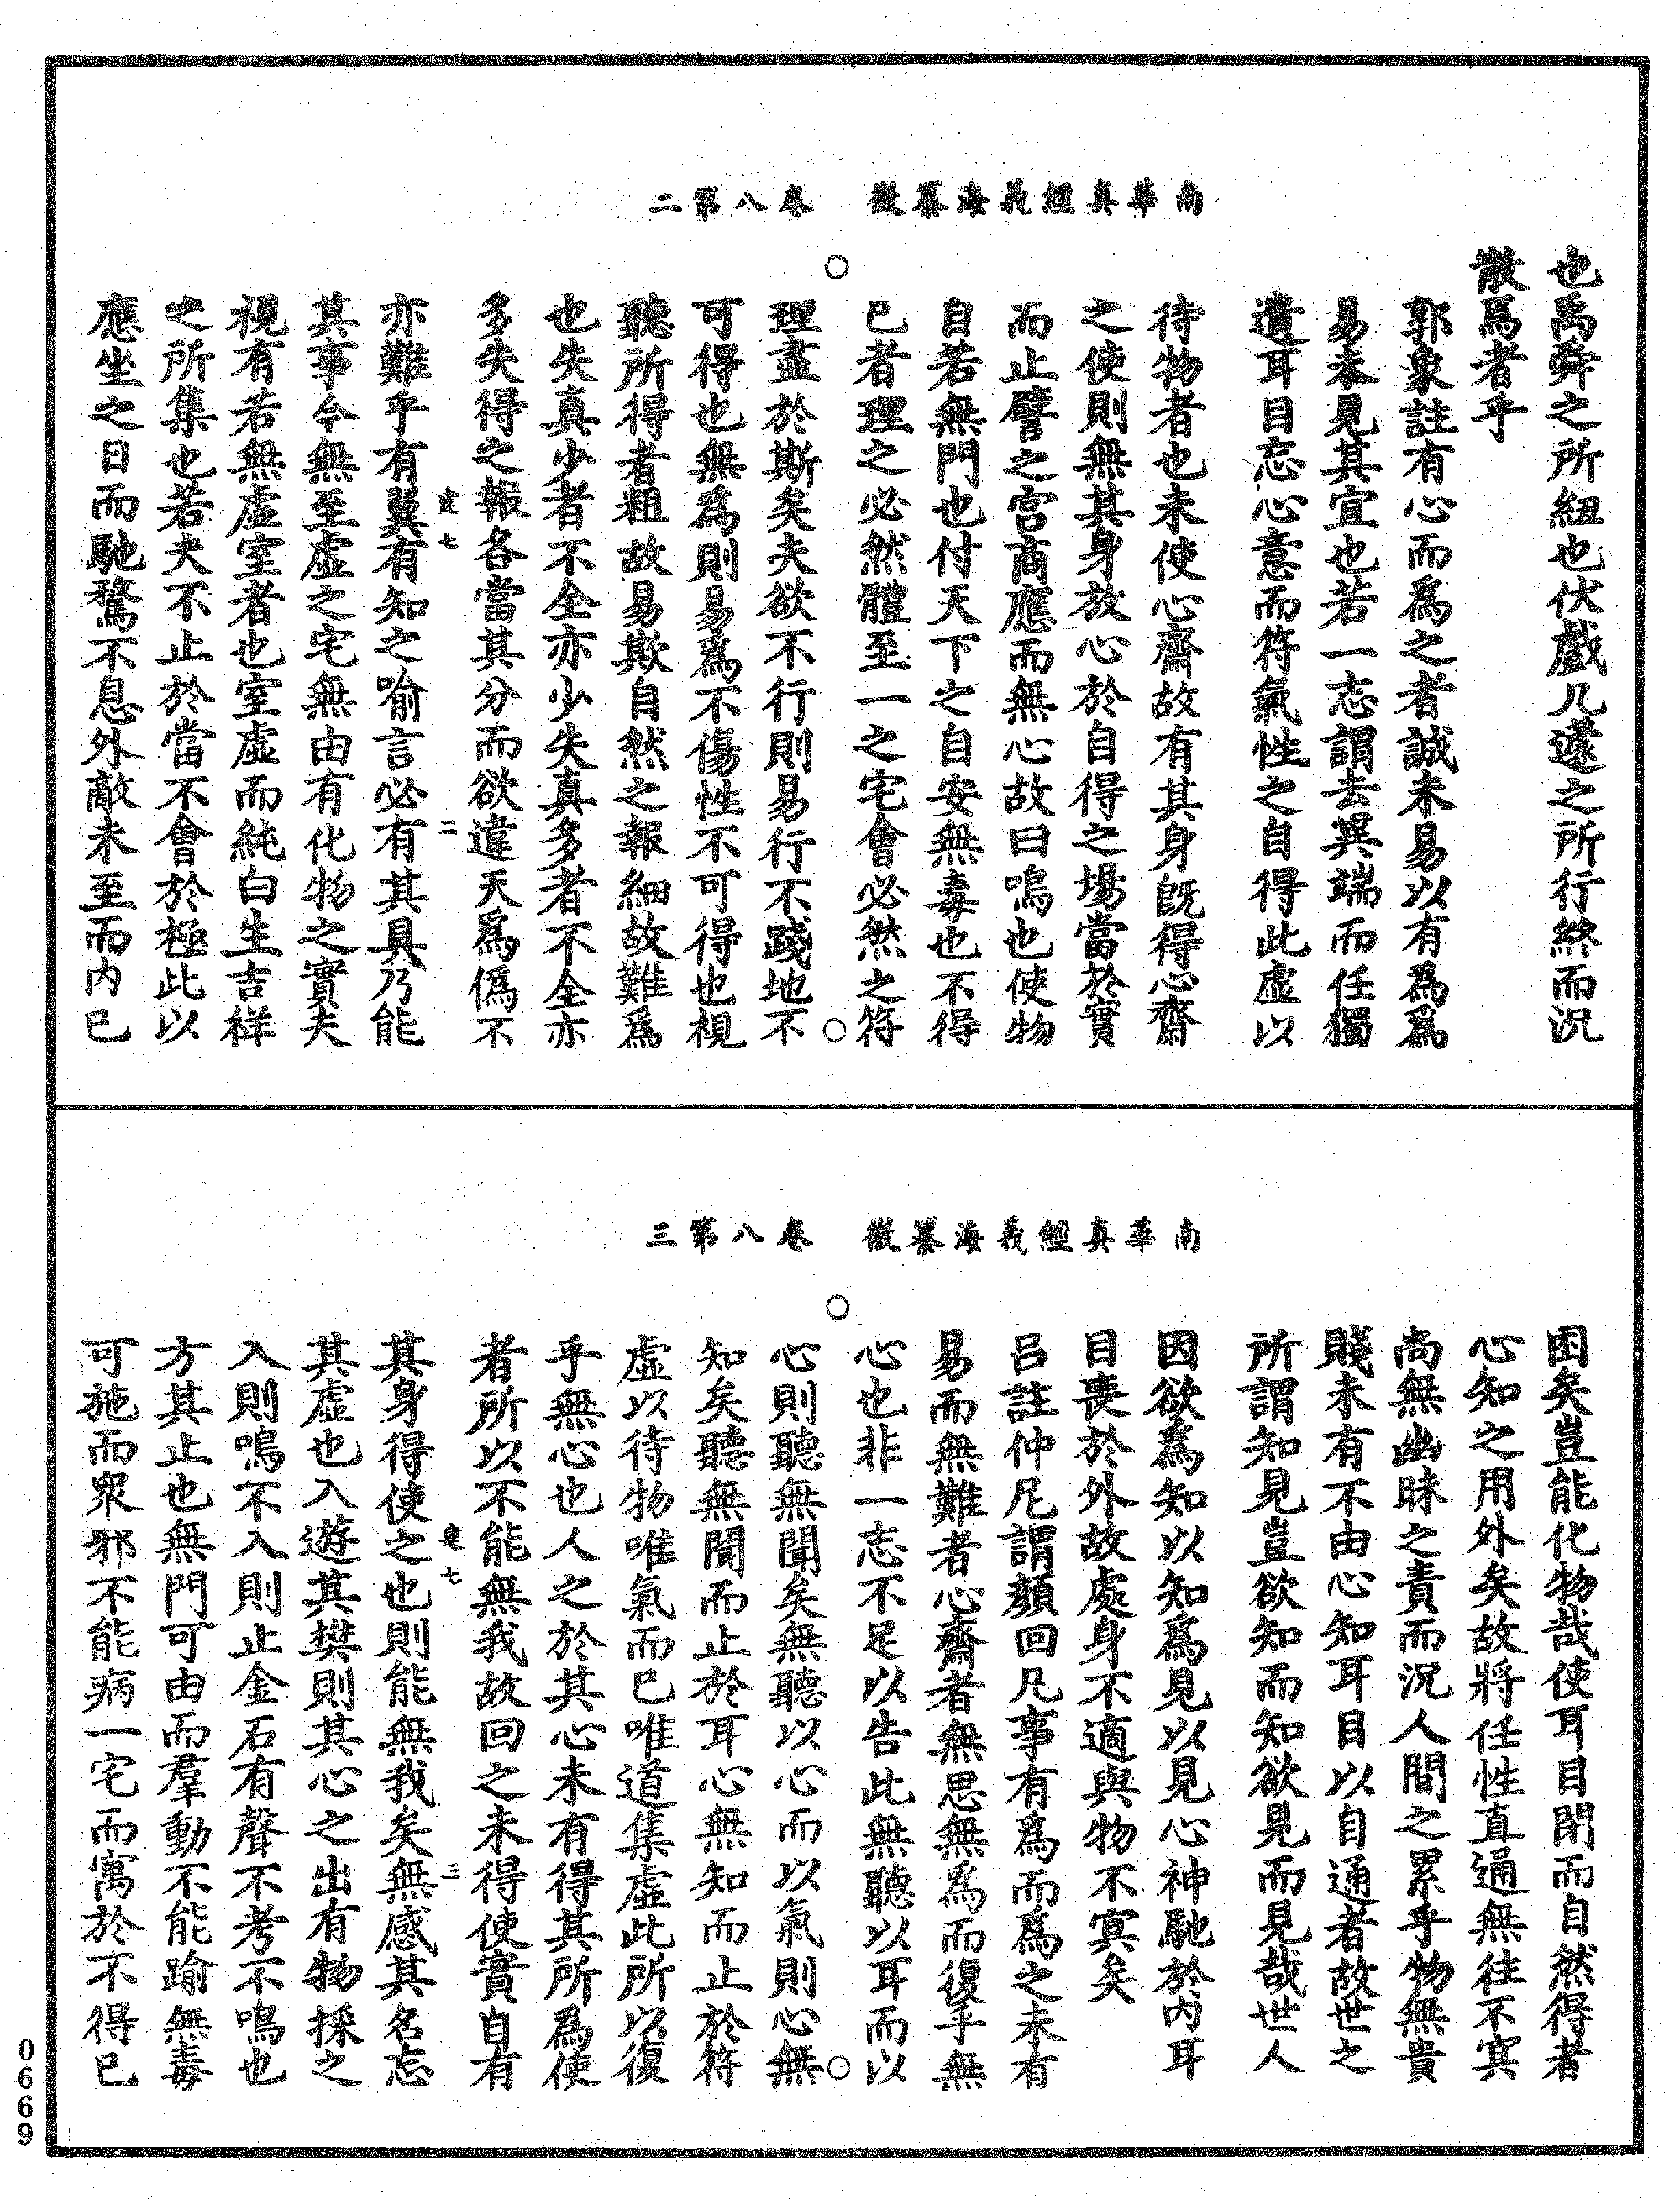 南華真經義海纂微　卷八第二
也禹舜之所紐也伏戲几蘧之所行終而況
散焉者乎
郭象註有心而為之者誠未易以有為為
易未見其宜也若一志謂去異端而任獨
遺耳目忘心意而符氣性之自得此虛以
待物者也未使心齋故有其身既得心齋
之使則無其身放心於自得之場當於實
而止譬之宮商應而無心故曰鳴也使物
自若無門也付天下之自安無毒也不得
已者理之必然體至一之宅會必然之符
理盡於斯矣夫欲不行則易行不踐地不
可得也無為則易為不傷性不可得也視
聽所得者粗故易欺自然之報細故難為
也失真少者不全亦少失真多者不全亦
多失得之報各當其分而欲違天為偽不
亦難乎有翼有知之喻言必有其具乃能
其事今無至虛之宅無由有化物之實夫
視有若無虛室者也室虛而純白生吉祥
之所集也若夫不止於當不會於極此以
應坐之日而馳騖不息外敵未至而內已
建七　二
南華真經義海纂微　卷八第三
困矣豈能化物哉使耳目閉而自然得者
心知之用外矣故將任性直通無往不冥
尚無幽昧之責而況人間之累乎物無貴
賤未有不由心知耳目以自通者故世之
所謂知見豈欲知而知欲見而見哉世人
因欲為知以知為見以見心神馳於內耳
目喪於外故處身不適與物不冥矣
呂註仲尼謂顏回凡事有為而為之未有
易而無難者心齋者無思無為而復乎無
心也非一志不足以告此無聽以耳而以
心則聽無聞矣無聽以心而以氣則心無
知矣聽無聞而止於耳心無知而止於符
虛以待物唯氣而已唯道集虛此所以復
乎無心也人之於其心未有得其所為使
者所以不能無我故回之未得使實自有
其身得使之也則能無我矣無感其名忘
其虛也入遊其樊則其心之出有物採之
入則鳴不入則止金石有聲不考不鳴也
方其止也無門可由而羣動不能踰無毒
可施而眾邪不能病一宅而寓於不得已
建七　三
0669